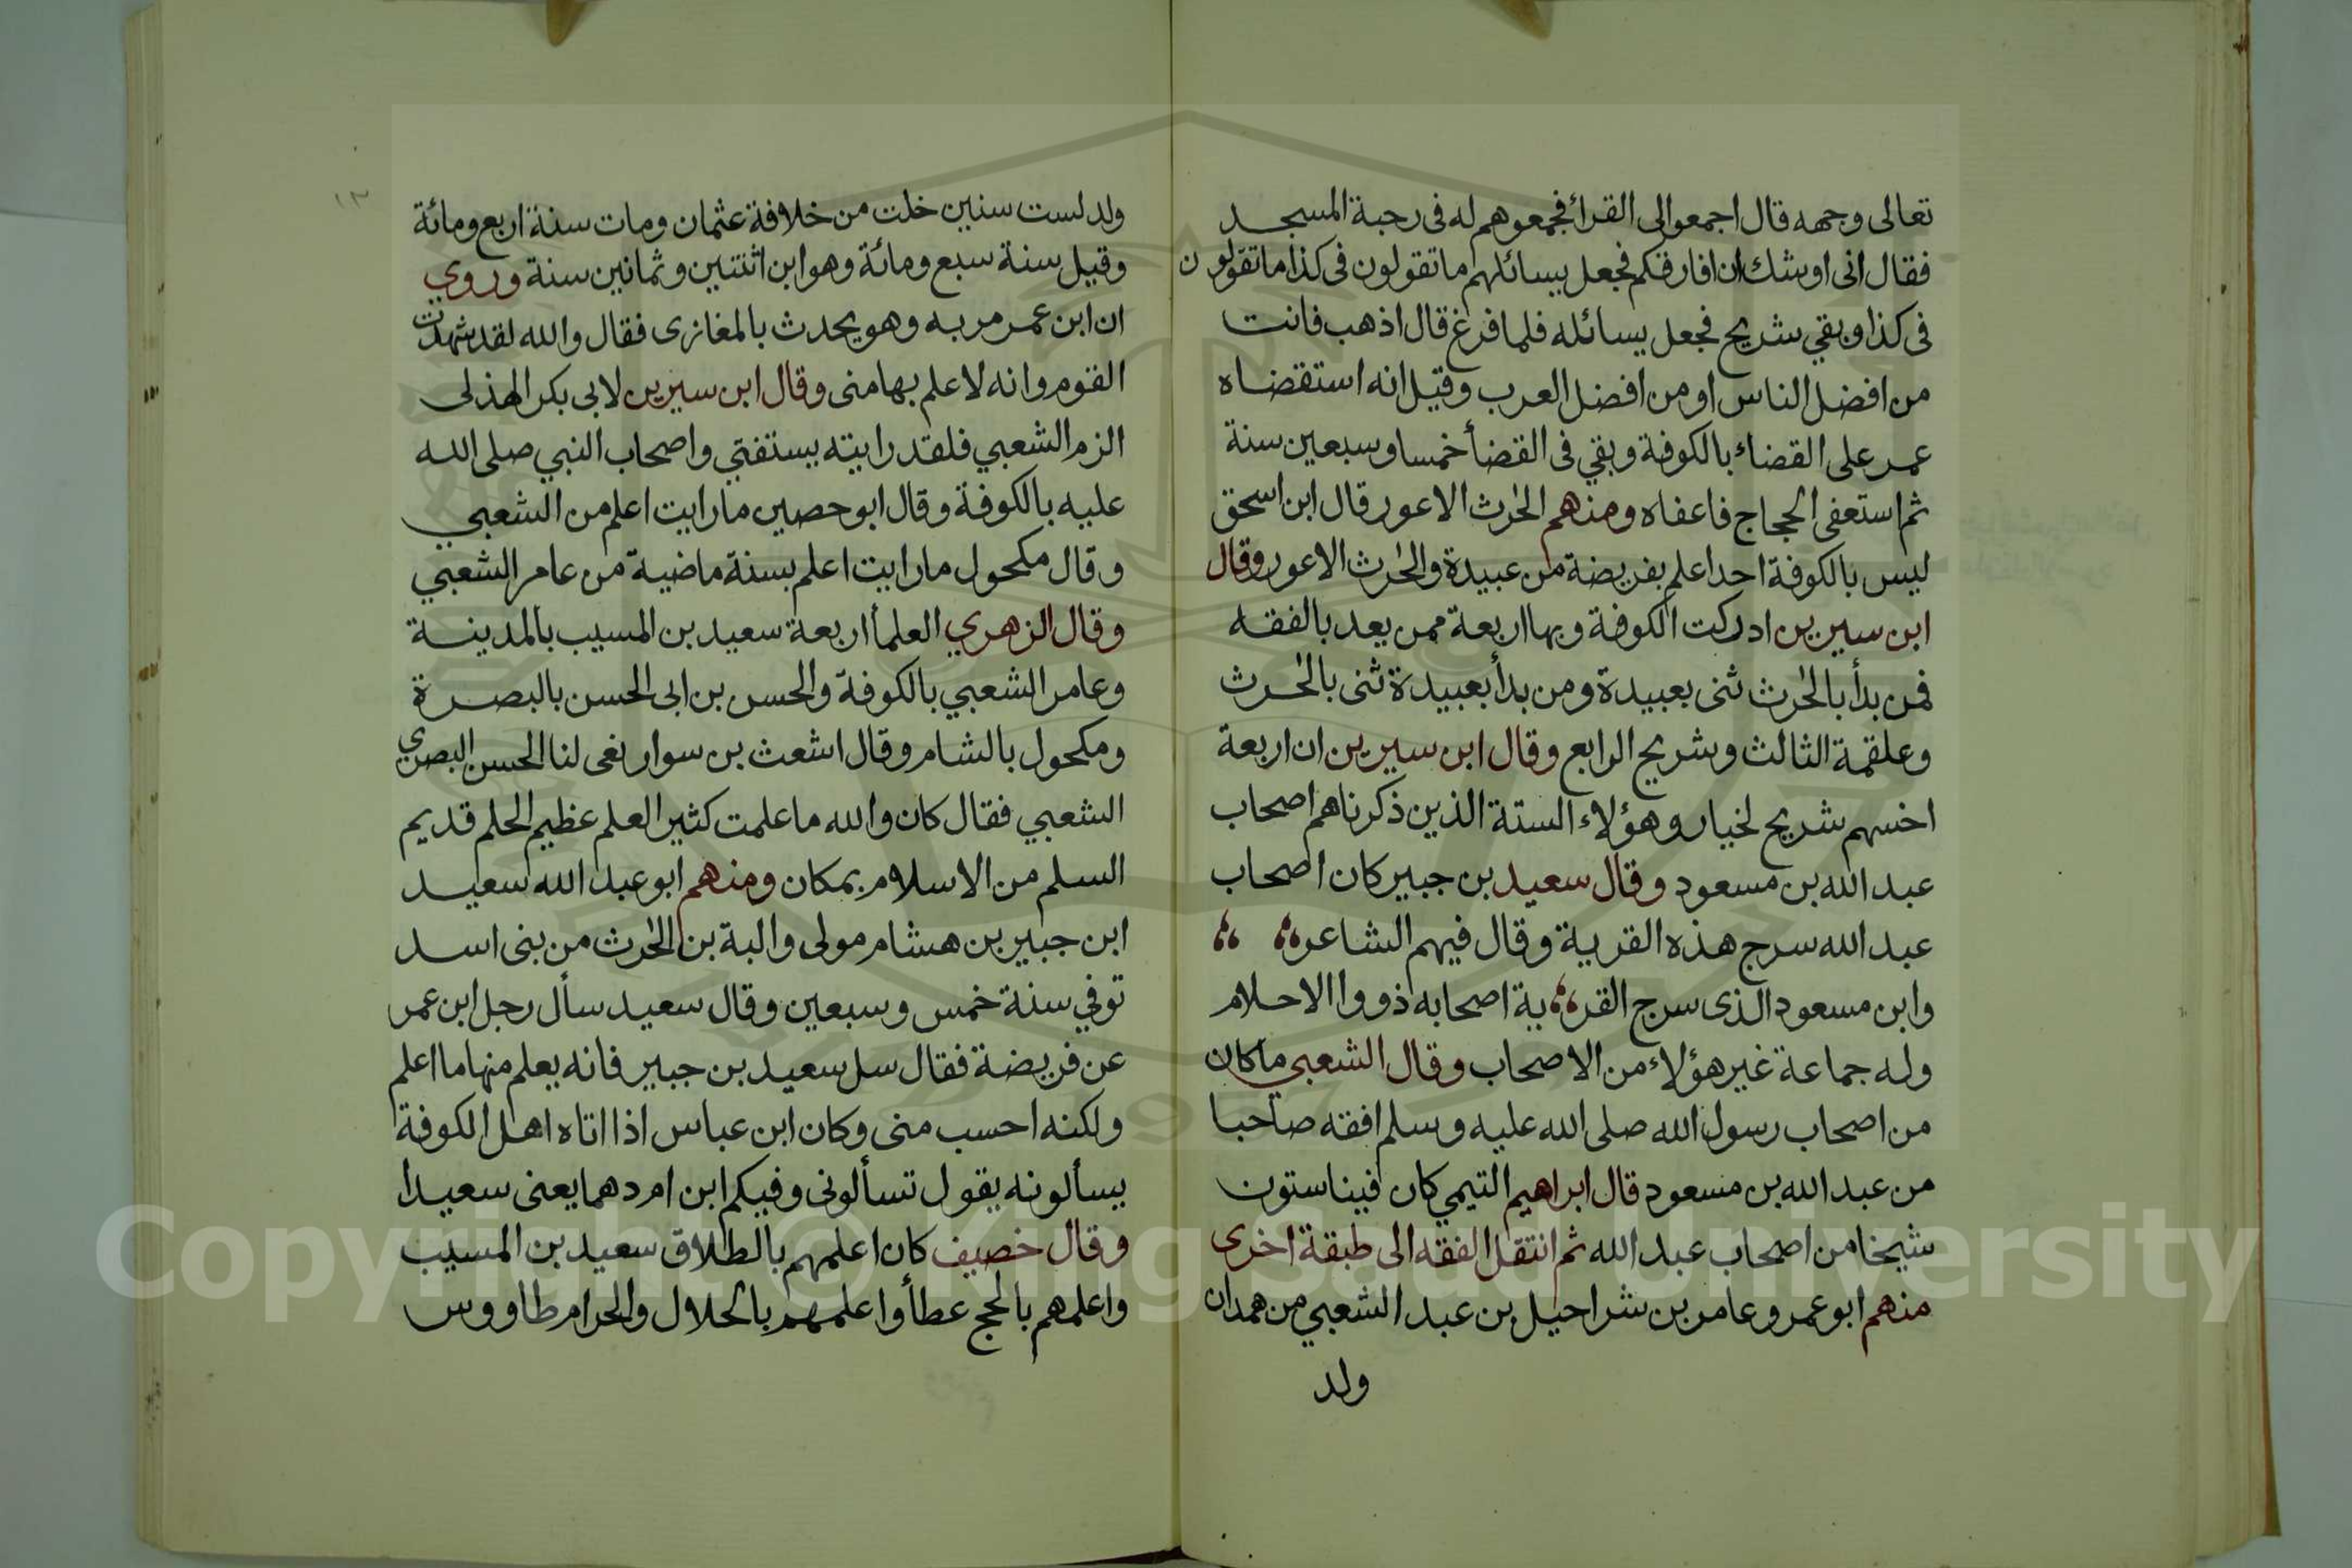 تعالى وجهه قال اجمعوا لى القرأ فجمعوهم له فى رحبة المسجد
فقال انى اوشك ان افارقكم فجعل يسائلهم ما تقولون فى كذا ما تقولون
فى كذا وبقي شريح فجعل يسائله فلما فرغ قال اذهب فانت
من افضل الناس او من افضل العرب وقيل انه استقضاه
عمر على القضاء بالكوفة وبقي فى القضأ خمسا وسبعين سنة
ثم استعفى الحجاج فاعفاه ومنهم الحٰرث الاعور قال ابن اسحق
ليس بالكوفة احد اعلم بفريضة من عبيدة والحٰرث الاعور وقال
ابن سيرين ادركت الكوفة وبها اربعة ممن يعد بالفقه
فمن بدأ بالحٰرث ثنى بعبيدة ومن بدأ بعبيدة ثنى بالحٰرث
وعلقمة الثالث وشريح الرابع وقال ابن سيرين ان اربعة
اخسهم شريح لخيار وهؤلاء الستة الذين ذكرناهم اصحاب
عبد الله بن مسعود وقال سعيد بن جبير كان اصحاب
عبد الله سرج هذه القرية وقال فيهم الشاعر
وابن مسعود الذى سرج القر ية اصحابه ذووا الاحلام
وله جماعة غير هؤلاء من الاصحاب وقال الشعبي ما كان
من اصحاب رسول الله صلى الله عليه وسلم افقه صاحبا
من عبد الله بن مسعود قال ابراهيم التيمي كان فينا ستون
شيخا من اصحاب عبد الله ثم انتقل الفقه الى طبقة اخرى
منهم ابو عمرو عامر بن شراحيل بن عبد الشعبي من همدان
ولد
١٣
ولد لست سنين خلت من خلافة عثمان ومات سنة اربع ومائة
وقيل سنة سبع ومائة وهو ابن اثنتين وثمانين سنة وروي
ان ابن عمر مر به وهو يحدث بالمغازى فقال والله لقد شهدت
القوم وانه لاعلم بها منى وقال ابن سيرين لابى بكر الهذلى
الزم الشعبي فلقد رايته يستفتي واصحاب النبي صلى الله
عليه بالكوفة وقال ابو حصين ما رايت اعلم من الشعبي
وقال مكحول ما رايت اعلم بسنة ماضية من عامر الشعبي
وقال الزهري العلمأ اربعة سعيد بن المسيب بالمدينة
وعامر الشعبي بالكوفة والحسن بن ابى الحسن بالبصرة
ومكحول بالشام وقال اشعث بن سوار نعى لنا الحسن البصري
الشعبي فقال كان والله ما علمت كثير العلم عظيم الحلم قديم
السلم من الاسلام بمكان ومنهم ابو عبد الله سعيد
ابن جبير بن هشام مولى والبة بن الحٰرث من بنى اسد
توفي سنة خمس وسبعين وقال سعيد سأل رجل ابن عمر
عن فريضة فقال سل سعيد بن جبير فانه يعلم منها ما اعلم
ولكنه احسب منى وكان ابن عباس اذا اتاه اهل الكوفة
يسألونه يقول تسألونى وفيكم ابن ام دهما يعنى سعيدا
وقال خصيف كان اعلمهم بالطلاق سعيد بن المسيب
واعلمهم بالحج عطأ واعلمهم بالحلال والحرام طاووس
Copyright © King Saud University